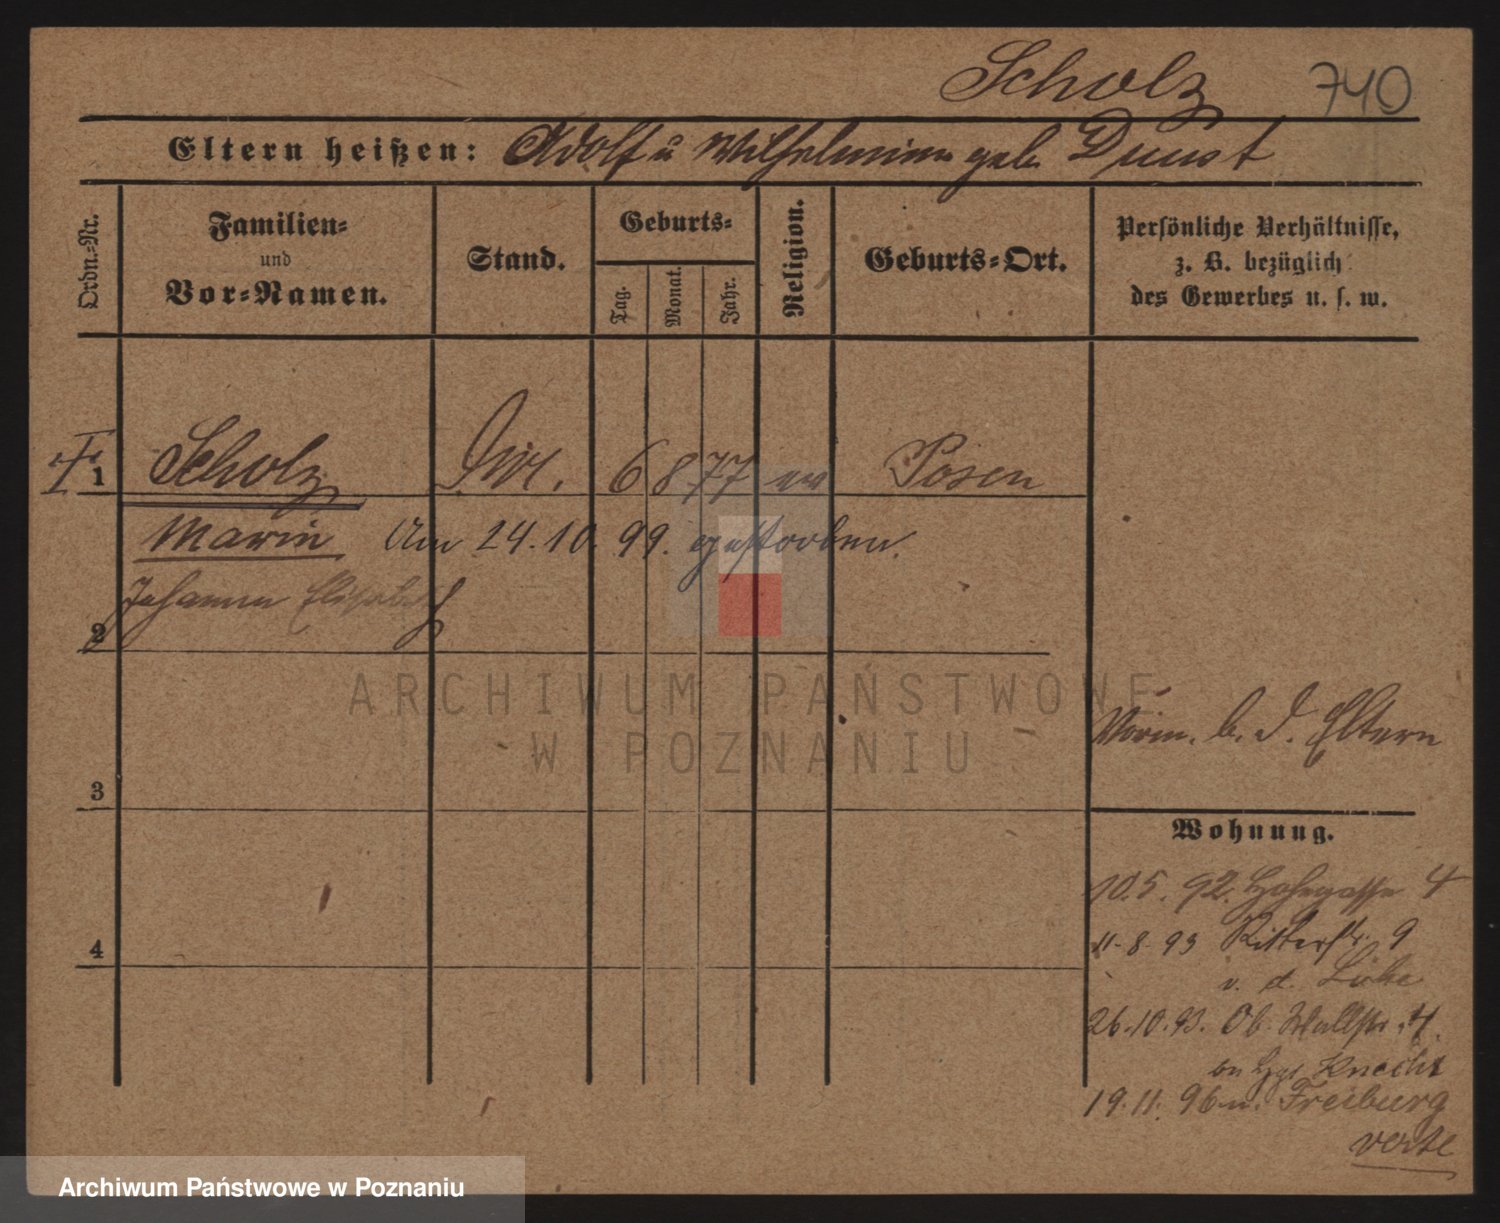 Scholz 740
Eltern heißen: Adolf u Wilhelmine geb. Dunst
Ordn.-Nr.
Familien-
und
Vor-Namen.
Stand.
Geburts-
Tag.
Monat.
Jahr.
Religion.
Geburts-Ort.
Persönliche Verhältnisse,
z. B. bezüglich
des Gewerbes u. s. w.
1 Scholz 6 8 77 ev Posen
Marie Am 24.10.99. gestorben.
Johanna Elisabeth
2
ARCHIWUM PAŃSTWOWE
W POZNANIU
b. d. Eltern
3
Wohnung.
10.5.92. 4
11-8-93 Ritterstr. 9
v. d.
4
26.10.93. Ob. Wallstr. 4.
Knecht
19.11.96 n. Freiburg
verte
Archiwum Państwowe w Poznaniu